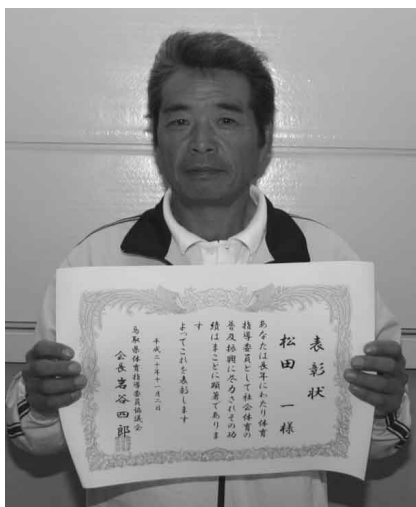 表彰状
松田 一 様
あなたは長年にわたり体育
指導委員として社会体育の
普及振興に尽力されその功
績はまことに顕著でありま
す
よってこれを表彰します
平成二十年十一月二日
鳥取県体育指導委員協議会
会長 岩谷四郎